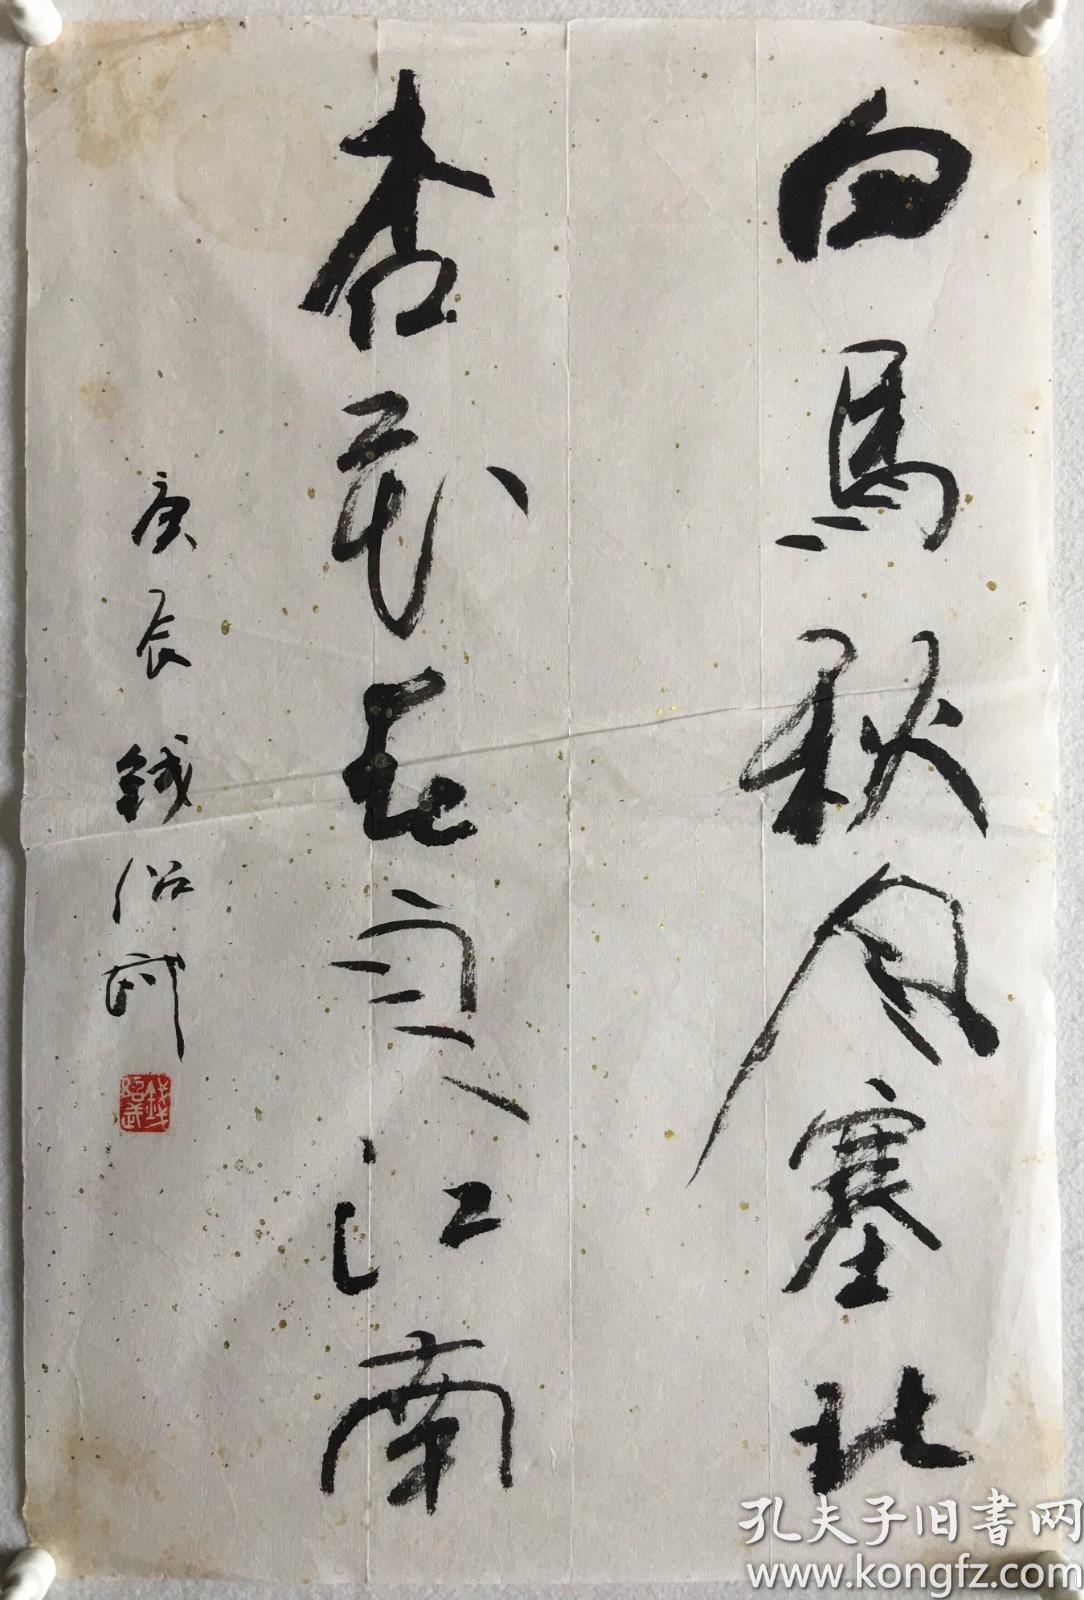 白馬秋風塞北
杏花春雨江南
庚辰 錢绍武
錢紹武
孔夫子旧書网
www.kongfz.com